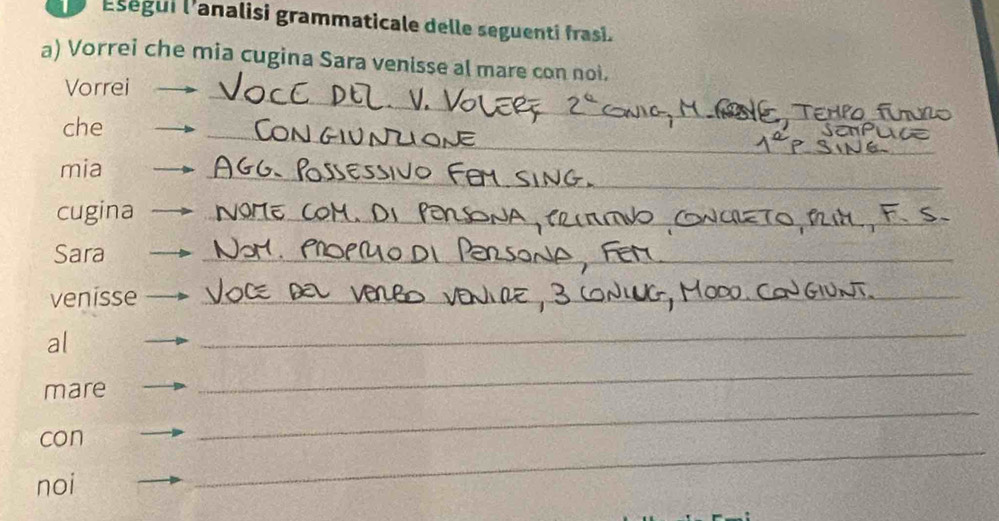 1 Esegui l'analisi grammaticale delle seguenti frasi.
a) Vorrei che mia cugina Sara venisse al mare con noi.
Vorrei → VOCE DEL. V. VOLERE, 2ª CONIG, M. TEMPO FUTURO SEMPLICE
1ª P. SING.
che → CONGIUNZIONE
mia → AGG. POSSESSIVO FEM SING.
cugina → NOME COM. DI PERSONA, PRIMITIVO, CONCRETO, PRIM, F. S.
Sara → NOM. PROPRIO DI PERSONA, FEM.
venisse → VOCE DEL VERBO VENIRE, 3 CONIUG, MODO. CONGIUNT.
al →
mare →
con →
noi →